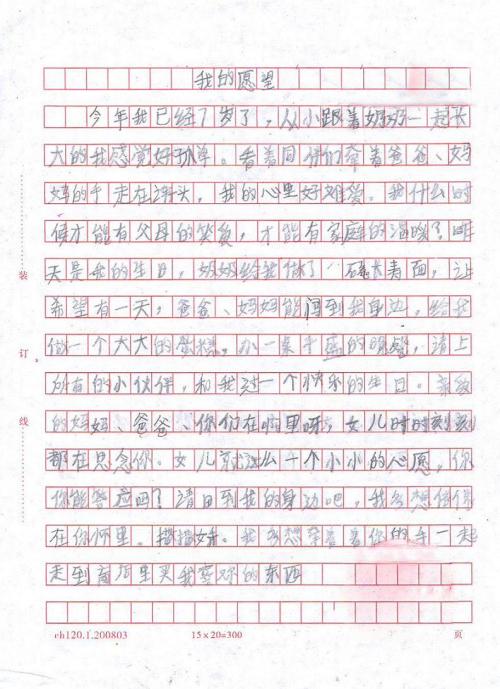 我的愿望
今年我已经7岁了，从小跟着奶奶一起长
大的我感觉好孤单。看着同伴们牵着爸爸、妈
妈的手走在街头，我的心里好难受。我什么时
候才能有父母的笑，才能有家庭的温暖？昨
天是我的生日，奶奶给我做了一碗长寿面，让
希望有一天，爸爸、妈妈能回到我身边，给我
做一个大大的蛋糕，办一桌丰盛的晚餐，请上
所有的小伙伴，和我过一个快乐的生日。亲爱
的妈妈、爸爸、你们在哪里呀，女儿时时刻刻
都在思念你。女儿就这么一个小小的心愿，你
你能答应吗？请回到我的身边吧，我多想
在你怀里。我多想牵着你的手一起
走到商场里买我喜欢的东西
装
订
线
ch120.1.200803
15×20=300
页